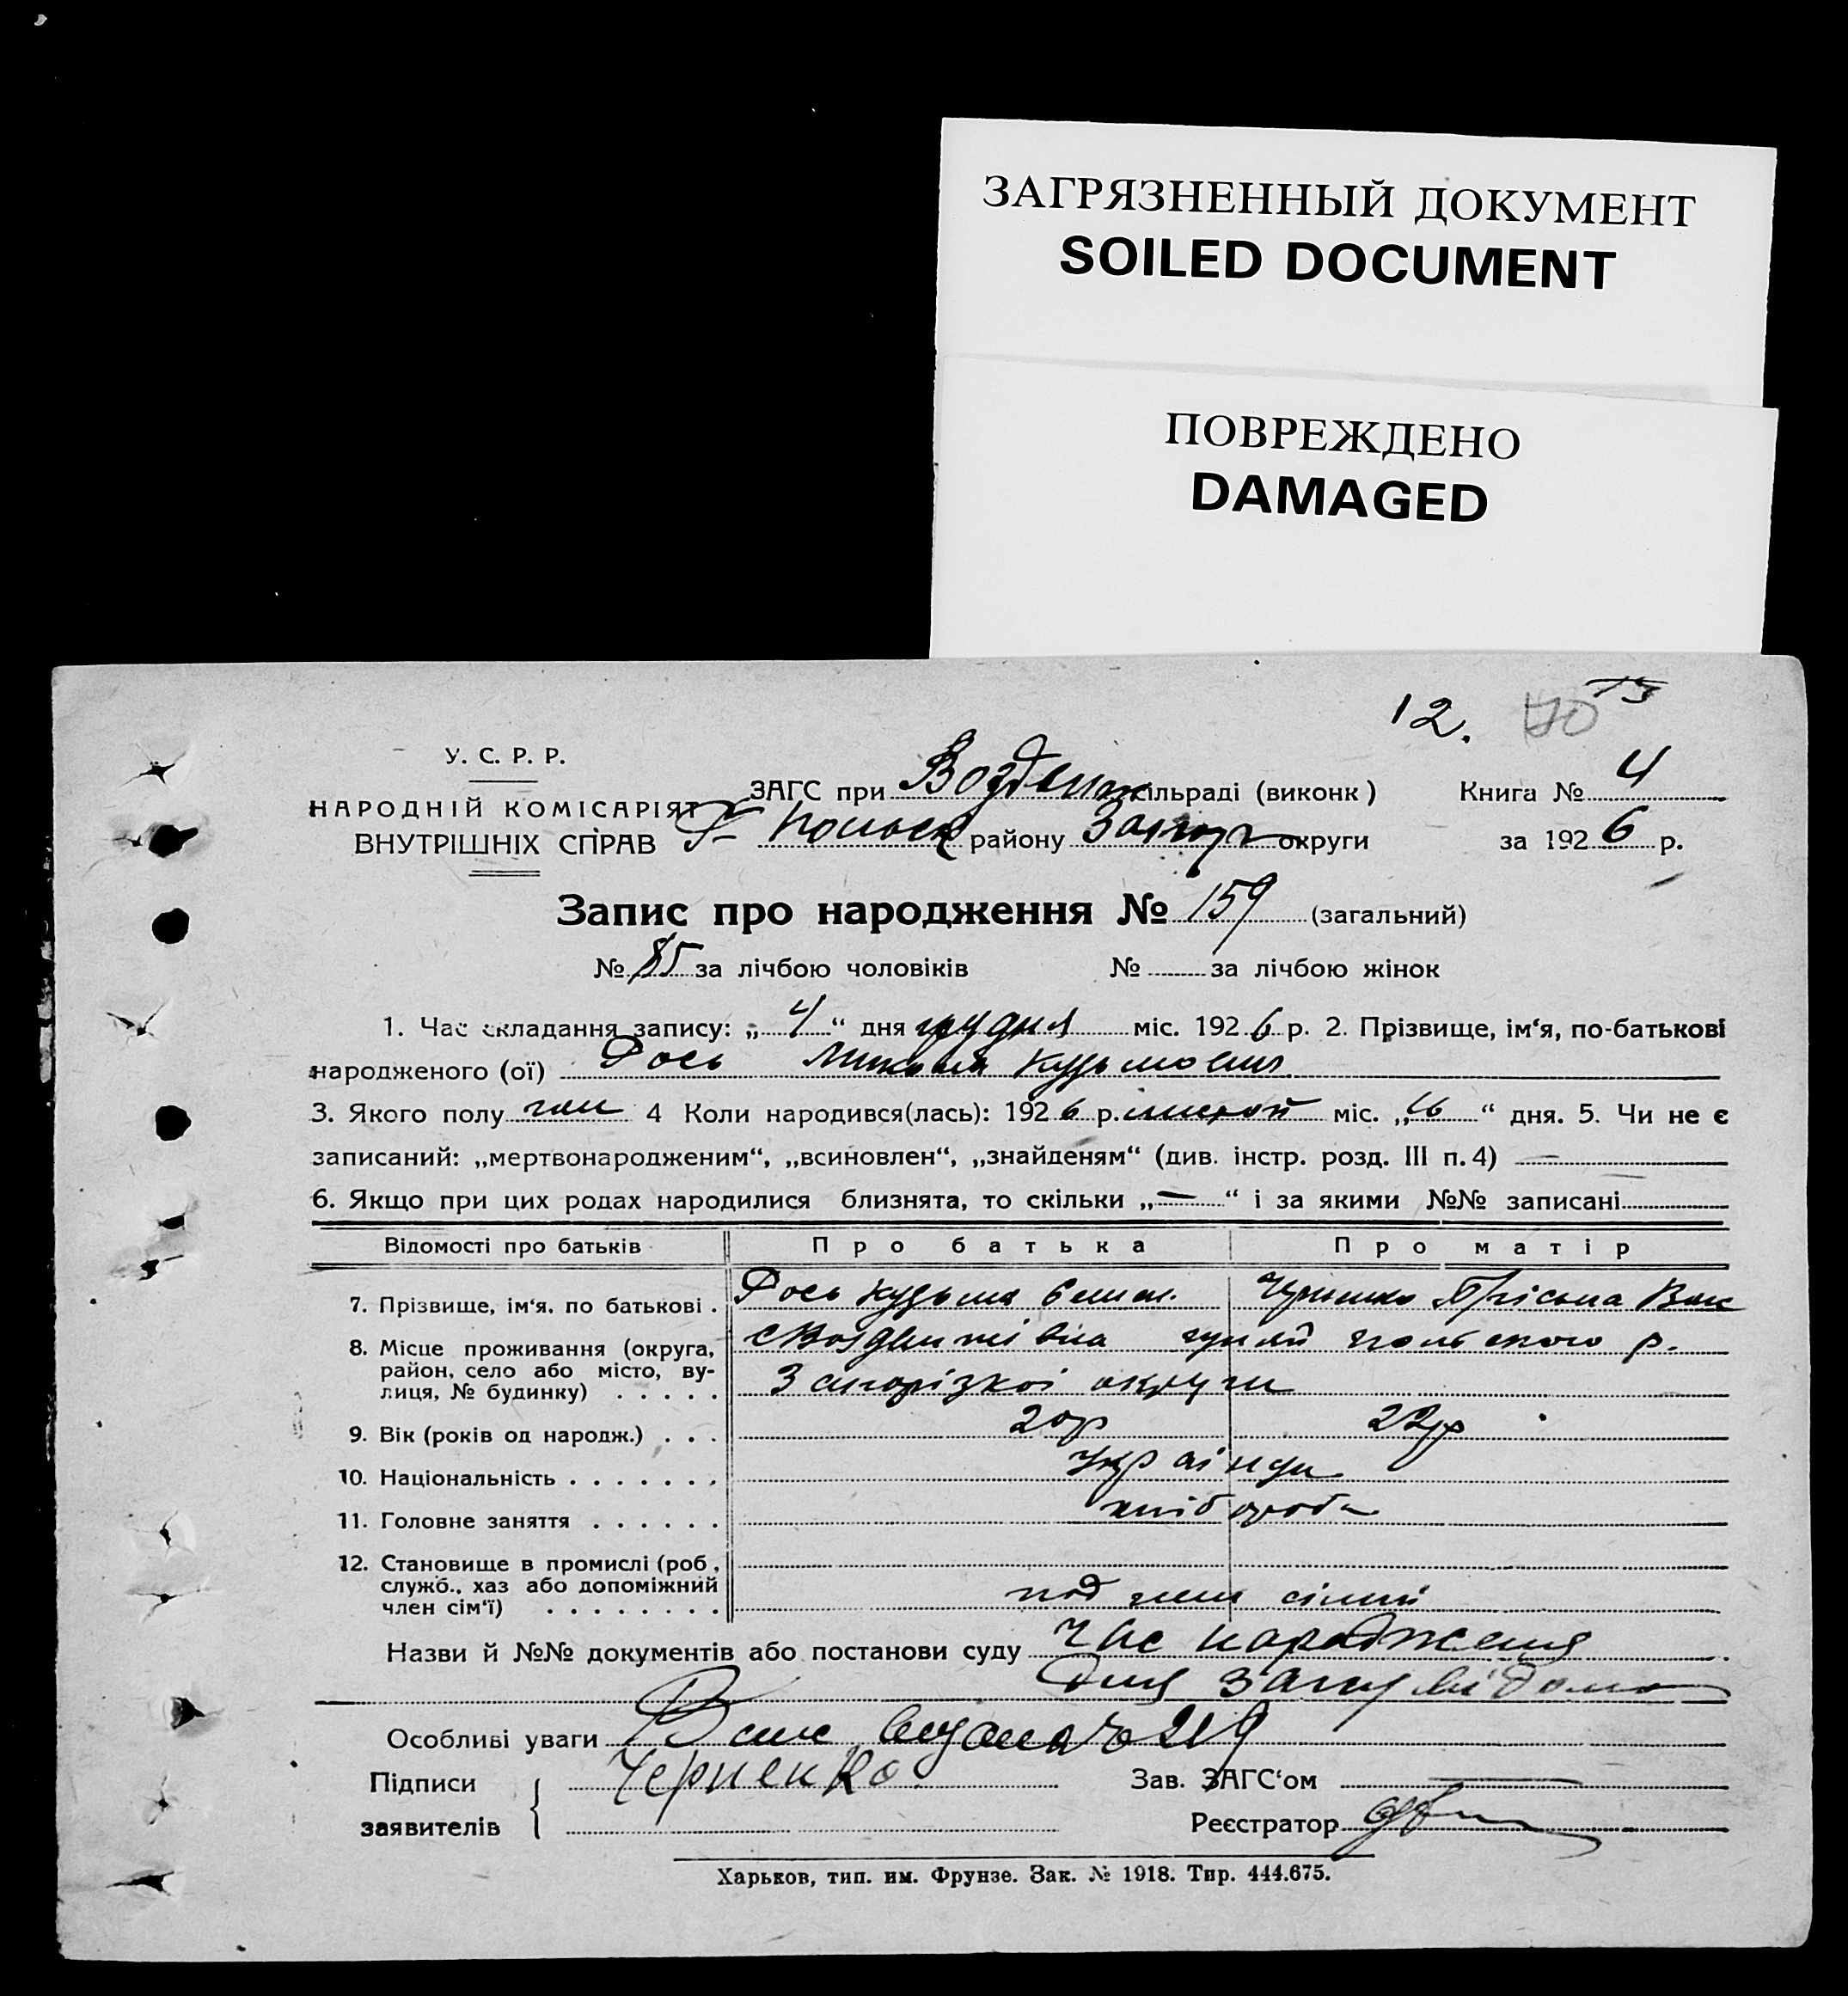 ЗАГРЯЗНЕННЫЙ ДОКУМЕНТ
SOILED DOCUMENT
ПОВРЕЖДЕНО
DAMAGED
12. 70
У. С. Р. Р.
НАРОДНІЙ КОМІСАРІЯТ
ВНУТРІШНІХ СПРАВ
ЗАГС при сільраді (виконк) Книга № 4
району округи за 1926 р.
Запис про народження № 159 (загальний)
№ 85 за лічбою чоловіків № за лічбою жінок
1. Час складання запису: „4“ дня грудня міс. 1926 р. 2. Прізвище, ім‘я, по-батькові
народженого (ої) Рось Микола Кузьмович
3. Якого полу чол 4 Коли народився(лась): 1926 р. листоп міс. „ “ дня. 5. Чи не є
записаний: „мертвонародженим“, „всиновлен“, „знайденям“ (див. інстр. розд. III п. 4) —
6. Якщо при цих родах народилися близнята, то скільки „—“ і за якими №№ записані
Відомості про батьків Про батька Про матір
7. Прізвище, ім‘я, по батькові . Рось Кузьма
8. Місце проживання (округа,
район, село або місто, ву-
лиця, № будинку) . . . . .
с Воздвижівка гуляй польского р.
Запорізкої округи
9. Вік (років од народж.) . . . 20р 22р
10. Національність . . . . . . . українци
11. Головне заняття . . . . . . хлібороби
12. Становище в промислі (роб.,
служб., хаз або допоміжний
член сім‘ї) . . . . . . . .
Назви й №№ документів або постанови суду Час народження
Особливі уваги
Підписи
заявителів
Черненко
Зав. ЗАГС‘ом
Реєстратор
Харьков, тип. им. Фрунзе. Зак. № 1918. Тир. 444.675.